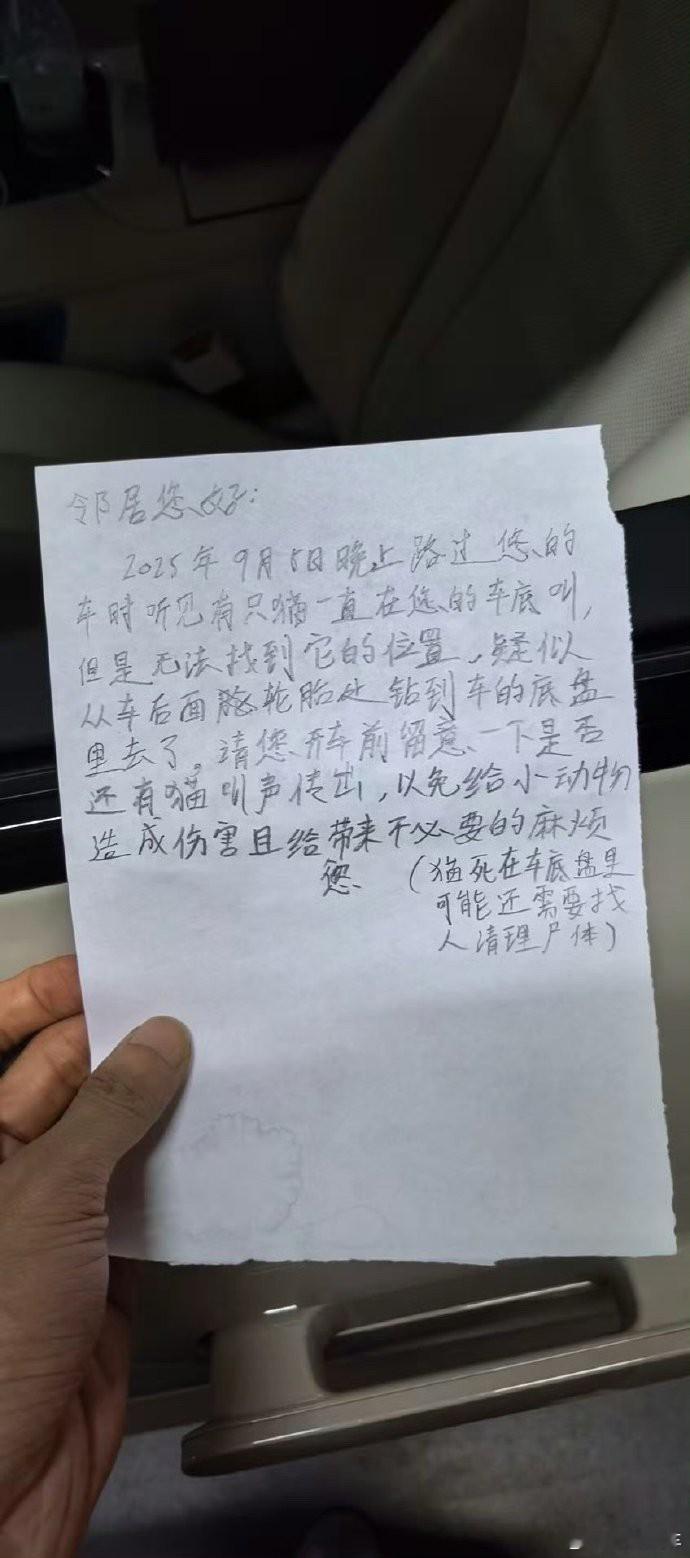 邻居您好:
2025年9月5日晚上路过您的
车时听见有只猫一直在您的车底叫,
但是无法找到它的位置,疑似
从车后面轮胎处钻到车的底盘
里去了。请您开车前留意一下是否
还有猫叫声传出,以免给小动物
造成伤害且给您带来不必要的麻烦
(猫死在车底盘里
可能还需要找
人清理尸体)